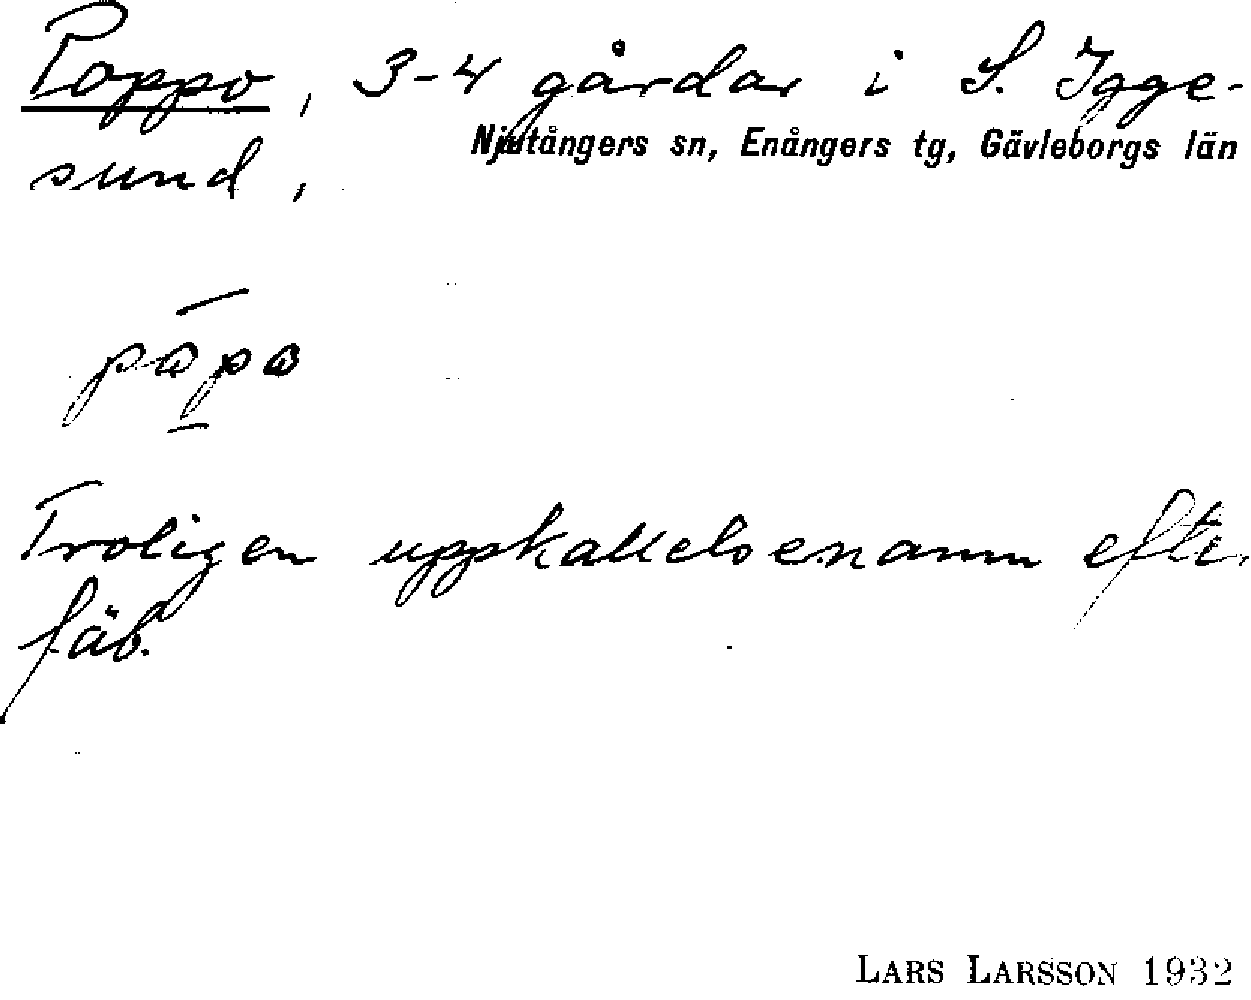 Poppo, 3-4 gårdar i S. Igge-
Njutångers sn, Enångers tg, Gävleborgs län
sund,
Troligen uppkallelsenamn efter
fäb.
LARS LARSSON 1932